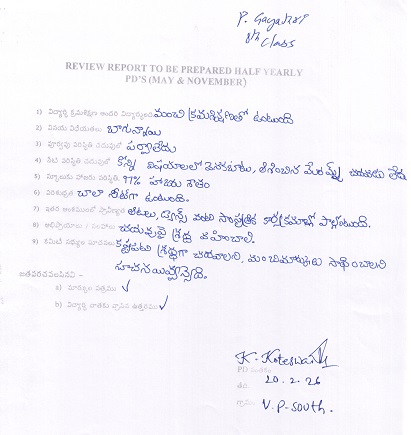 P. Gayatri
8th Class
REVIEW REPORT TO BE PREPARED HALF YEARLY
PD'S (MAY & NOVEMBER)
1) విద్యార్థి క్రమశిక్షణ అందరి విద్యార్థులతో మంచి క్రమశిక్షణతో ఉంటుంది
2) వినయ విధేయతలు బాగున్నాయి
3) పూర్వపు పరిస్థితి చదువులో పర్వాలేదు
4) నేటి పరిస్థితి చదువులో కొన్ని విషయాలలో వెనకబాటు,
5) స్కూలుకు హాజరు పరిస్థితి 97% హాజరు శాతం
6) పరిశుభ్రత చాలా నీట్‌గా ఉంటుంది.
7) ఇతర అంశములలో ప్రావీణ్యత ఆటలు, డ్యాన్స్ వంటి సాంస్కృతిక కార్యక్రమాలలో పాల్గొంటుంది.
8) అభిప్రాయాలు / సలహాలు చదువుపై శ్రద్ధ వహించాలి.
9) కమిటీ సభ్యుల సూచనలు కష్టపడి శ్రద్ధగా చదవాలని, మంచి మార్కులు సాధించాలని
సూచనయిచ్చాన్నది.
జతపరచవలసినవి :-
a) మార్కుల పత్రము ✓
b) విద్యార్థి దాతకు వ్రాసిన ఉత్తరము ✓
K. Koteswar
PD సంతకం
తేది. 20.2.26
గ్రామం V.P-South.